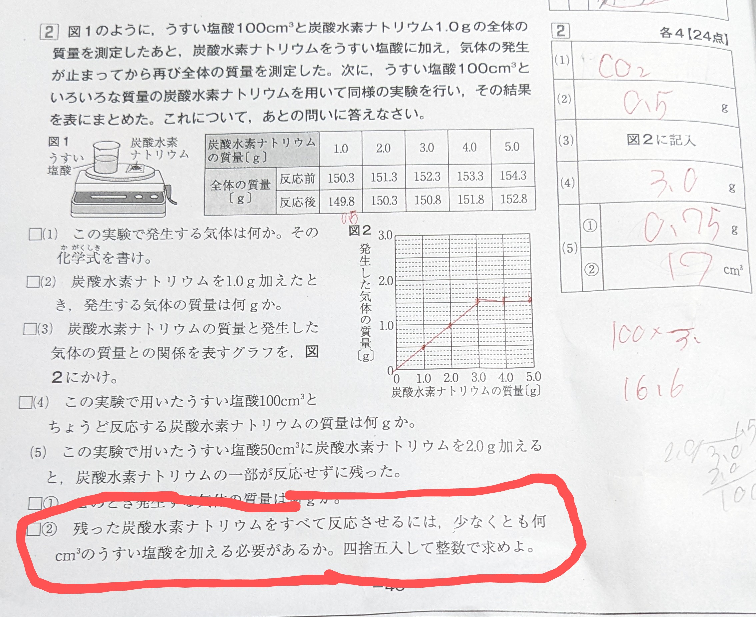 2 図1のように,うすい塩酸100cm³と炭酸水素ナトリウム1.0gの全体の
質量を測定したあと,炭酸水素ナトリウムをうすい塩酸に加え,気体の発生
が止まってから再び全体の質量を測定した。次に,うすい塩酸100cm³と
いろいろな質量の炭酸水素ナトリウムを用いて同様の実験を行い,その結果
を表にまとめた。これについて,あとの問いに答えなさい。
図1
うすい塩酸
炭酸水素ナトリウム
炭酸水素ナトリウムの質量〔g〕 1.0 2.0 3.0 4.0 5.0
全体の質量〔g〕 反応前 150.3 151.3 152.3 153.3 154.3
反応後 149.8 150.3 150.8 151.8 152.8
0.5
□(1) この実験で発生する気体は何か。その
化学式を書け。
かがくしき
□(2) 炭酸水素ナトリウムを1.0g加えたと
き,発生する気体の質量は何gか。
□(3) 炭酸水素ナトリウムの質量と発生した
気体の質量との関係を表すグラフを,図
2にかけ。
図2
発生した気体の質量〔g〕
3.0
2.0
1.0
0
0 1.0 2.0 3.0 4.0 5.0
炭酸水素ナトリウムの質量〔g〕
□(4) この実験で用いたうすい塩酸100cm³と
ちょうど反応する炭酸水素ナトリウムの質量は何gか。
(5) この実験で用いたうすい塩酸50cm³に炭酸水素ナトリウムを2.0g加える
と,炭酸水素ナトリウムの一部が反応せずに残った。
□① このとき発生する気体の質量は何gか。
□② 残った炭酸水素ナトリウムをすべて反応させるには,少なくとも何
cm³のうすい塩酸を加える必要があるか。四捨五入して整数で求めよ。
2 各4【24点】
(1) CO₂
(2) 0.5 g
(3) 図2に記入
(4) 3.0 g
(5) ① 0.75 g
② 17 cm³
16.6